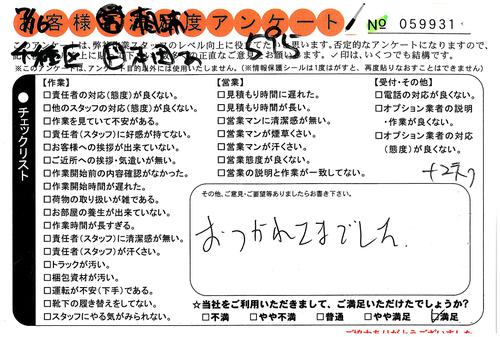 お客様満足度アンケート
№ 059931
千種区
このアンケートは、弊社スタッフのレベル向上に役立てたいと思います。否定的なアンケートになりますので、
✓印は、いくつでも結構です。
※このアンケートは、アンケート目的以外には使用いたしません。(※情報保護シールは1度はがすと、再度貼りなおすことはできません)
●チェックリスト
【作業】
□責任者の対応(態度)が良くない。
□他のスタッフの対応(態度)が良くない。
□作業を見ていて不安がある。
□責任者(スタッフ)に好感が持てない。
□お客様への挨拶が出来ていない。
□ご近所への挨拶・気遣いが無い。
□作業開始前の内容確認がなかった。
□作業開始時間が遅れた。
□荷物の取り扱いが雑である。
□お部屋の養生が出来ていない。
□作業時間が長すぎる。
□責任者(スタッフ)に清潔感が無い。
□責任者(スタッフ)が汗くさい。
□トラックが汚い。
□梱包資材が汚い。
□運転が不安(下手)である。
□靴下の履き替えをしてない。
□スタッフにやる気がみられない。
【営業】
□見積もり時間に遅れた。
□見積もり時間が長い。
□営業マンに清潔感が無い。
□営業マンが煙草くさい。
□営業マンが汗くさい。
□営業態度が良くない。
□営業の説明と作業が一致してない。
【受付・その他】
□電話の対応が良くない。
□オプション業者の説明
・作業が良くない。
□オプション業者の対応
(態度)が良くない。
その他、ご意見・ご要望等ありましたらお書き下さい。
おつかれさまでした。
☆当社をご利用いただきまして、ご満足いただけたでしょうか?
□不満 □やや不満 □普通 □やや満足 ☑満足
ご協力ありがとうございました